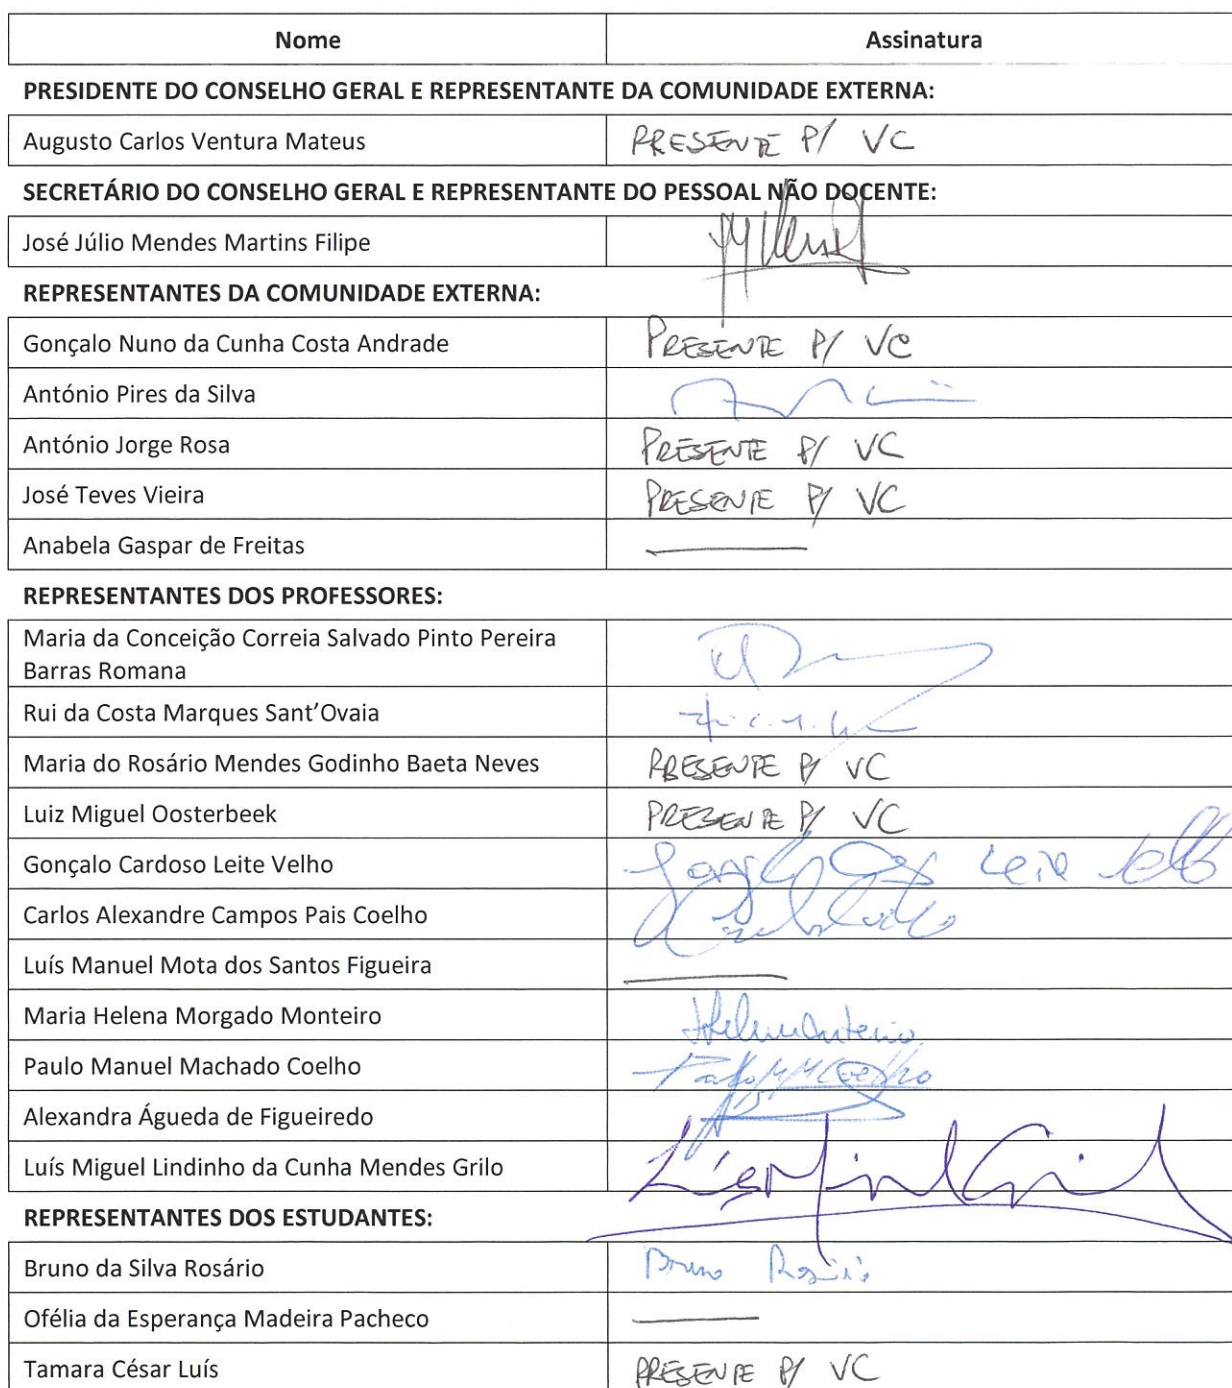 Nome Assinatura
PRESIDENTE DO CONSELHO GERAL E REPRESENTANTE DA COMUNIDADE EXTERNA:
Augusto Carlos Ventura Mateus PRESENTE P/ VC
SECRETÁRIO DO CONSELHO GERAL E REPRESENTANTE DO PESSOAL NÃO DOCENTE:
José Júlio Mendes Martins Filipe
REPRESENTANTES DA COMUNIDADE EXTERNA:
Gonçalo Nuno da Cunha Costa Andrade PRESENTE P/ VC
António Pires da Silva
António Jorge Rosa PRESENTE P/ VC
José Teves Vieira PRESENTE P/ VC
Anabela Gaspar de Freitas
REPRESENTANTES DOS PROFESSORES:
Maria da Conceição Correia Salvado Pinto Pereira
Barras Romana
Rui da Costa Marques Sant'Ovaia
Maria do Rosário Mendes Godinho Baeta Neves PRESENTE P/ VC
Luiz Miguel Oosterbeek PRESENTE P/ VC
Gonçalo Cardoso Leite Velho
Carlos Alexandre Campos Pais Coelho
Luís Manuel Mota dos Santos Figueira
Maria Helena Morgado Monteiro
Paulo Manuel Machado Coelho
Alexandra Águeda de Figueiredo
Luís Miguel Lindinho da Cunha Mendes Grilo
REPRESENTANTES DOS ESTUDANTES:
Bruno da Silva Rosário Bruno Rosário
Ofélia da Esperança Madeira Pacheco
Tamara César Luís PRESENTE P/ VC